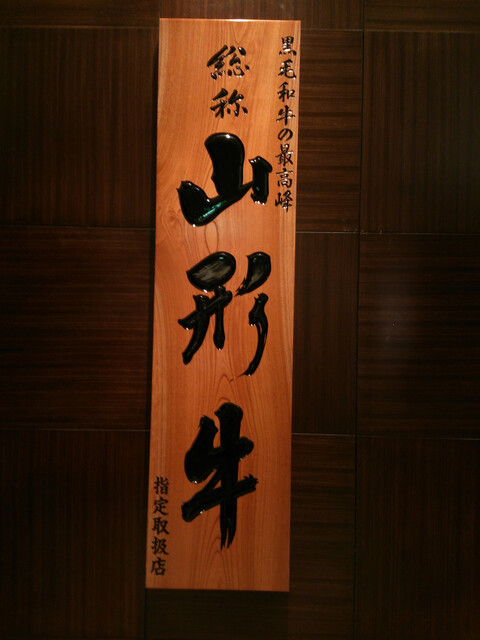 黒毛和牛の最高峰
総称
山形牛
指定取扱店